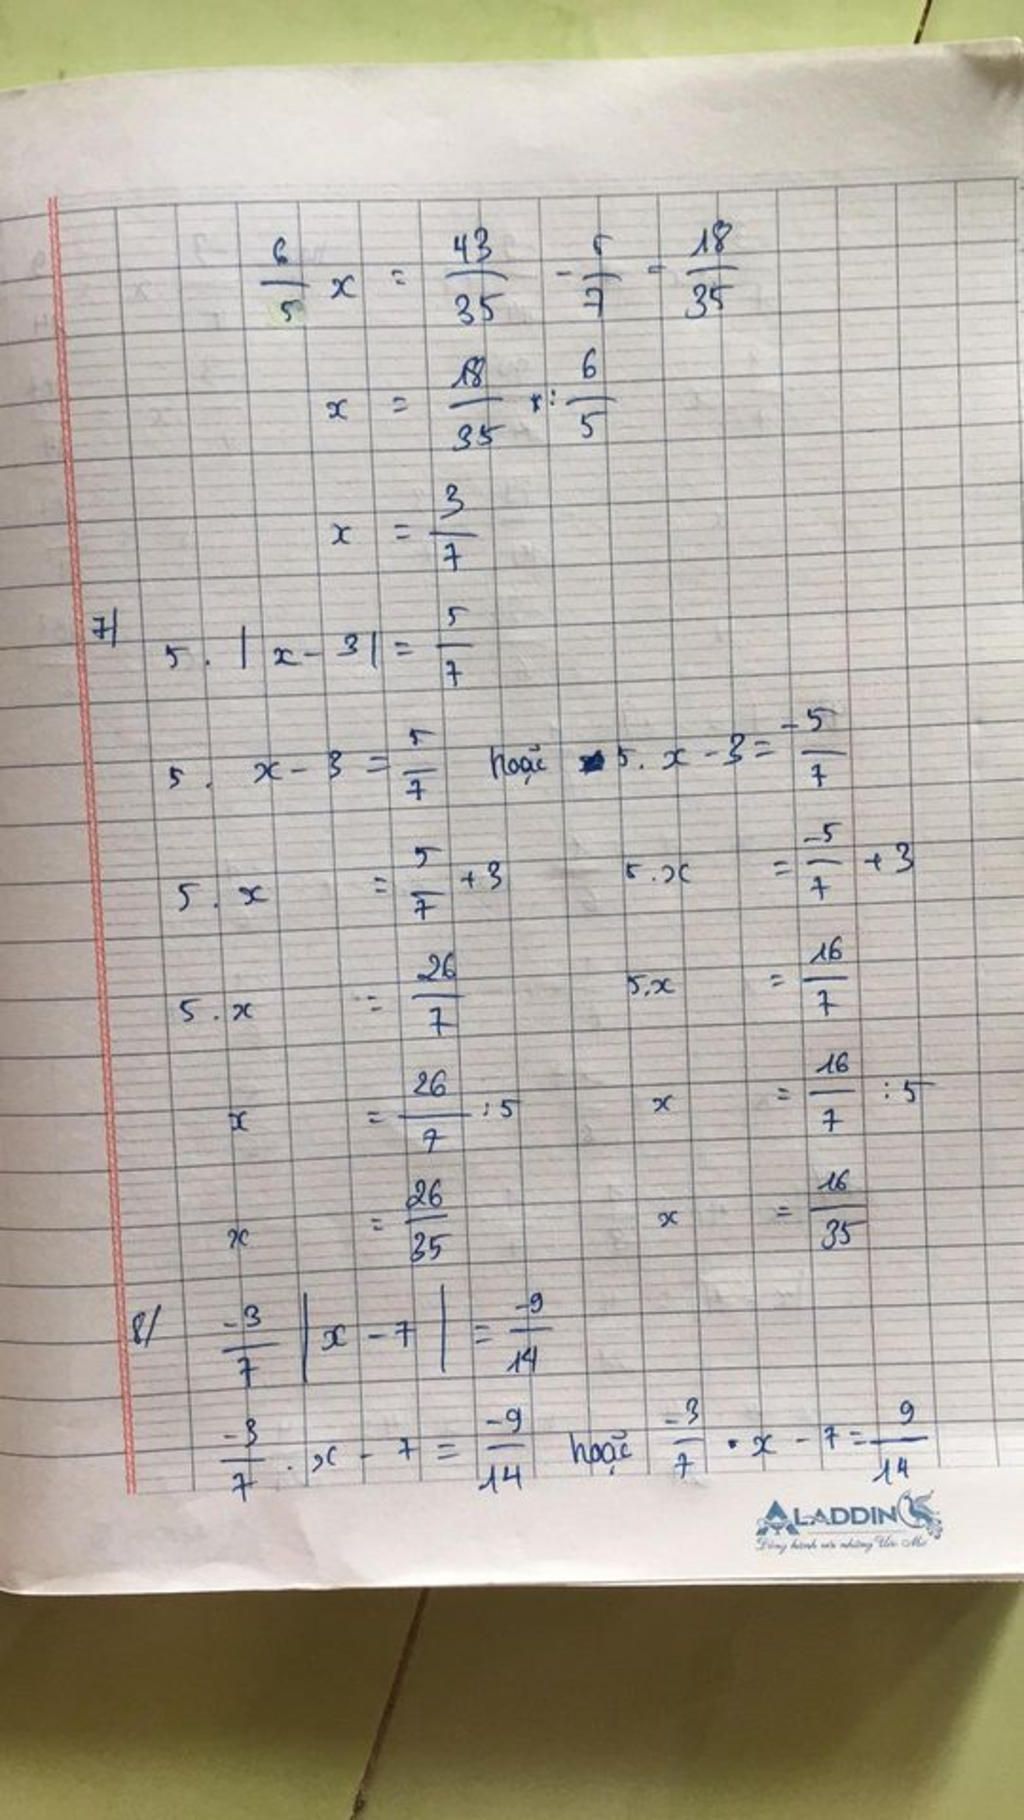 6/5 x = 43/35 - 5/7 = 18/35
x = 18/35 : 6/5
x = 3/7
7/ 5 . |x - 3| = 5/7
5 . x - 3 = 5/7 hoặc 5. x - 3 = -5/7
5 . x = 5/7 + 3 5.x = -5/7 + 3
5 . x = 26/7 5.x = 16/7
x = 26/7 : 5 x = 16/7 : 5
x = 26/35 x = 16/35
8/ -3/7 |x - 7| = -9/14
-3/7 . x - 7 = -9/14 hoặc -3/7 . x - 7 = 9/14
ALADDIN
Đồng hành với những Ước Mơ